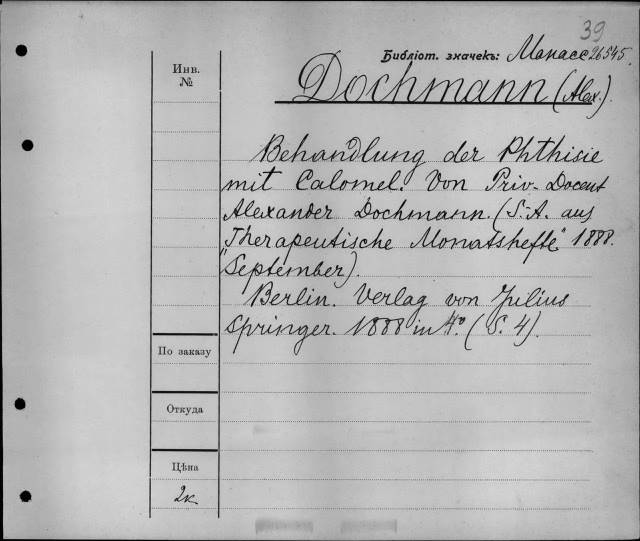 39
Библіот. значекъ: Манасс 26545.
Инв.
№
Dochmann (Alex.).
Behandlung der Phthisie
mit Calomel. Von Priv.-Docent
Alexander Dochmann. (S.-A. aus
„Therapeutische Monatshefte" 1888.
September).
Berlin. Verlag von Julius
Springer. 1888 in 4°. (S. 4).
По заказу
Откуда
Цѣна
2к